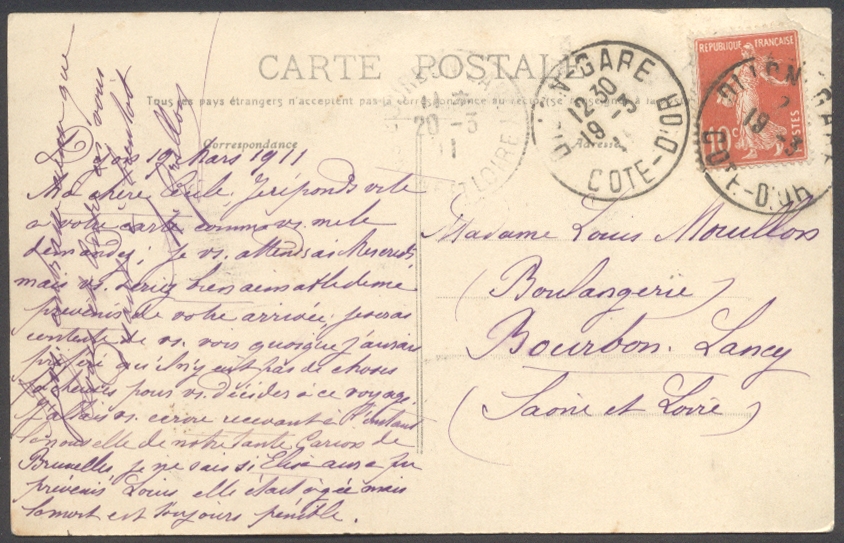 CARTE POSTALE
Tous les pays étrangers n'acceptent pas la correspondance au recto (se renseigner à la
Correspondance
Adresse
RÉPUBLIQUE FRANÇAISE
10 c
POSTES
DIJON-GARE
12 30
19 -3
COTE-D'OR
DIJON-GARE
19 -3
COTE-D'OR
20 -3
LOIRE
19 Mars 1911
Ma chère Cécile, Je réponds vite
a votre carte comme vs me le
demandez; je vs. attends
mais vs. seriez bien aimable de me
prévenir de votre arrivée, je serai
contente de vs. voir quoique j'aurais
préféré qu'il n'y eut pas de choses
fâcheuses pour vs. décider à ce voyage.
J'allais vs. écrire recevant à l'instant
la nouvelle de notre tante Carion de
Bruxelles, je ne sais si Elise aura pu
prévenir Louis, elle était âgée mais
la mort est toujours pénible.
Madame Louis Mouillon
(Boulangerie)
Bourbon-Lancy
(Saône et Loire)